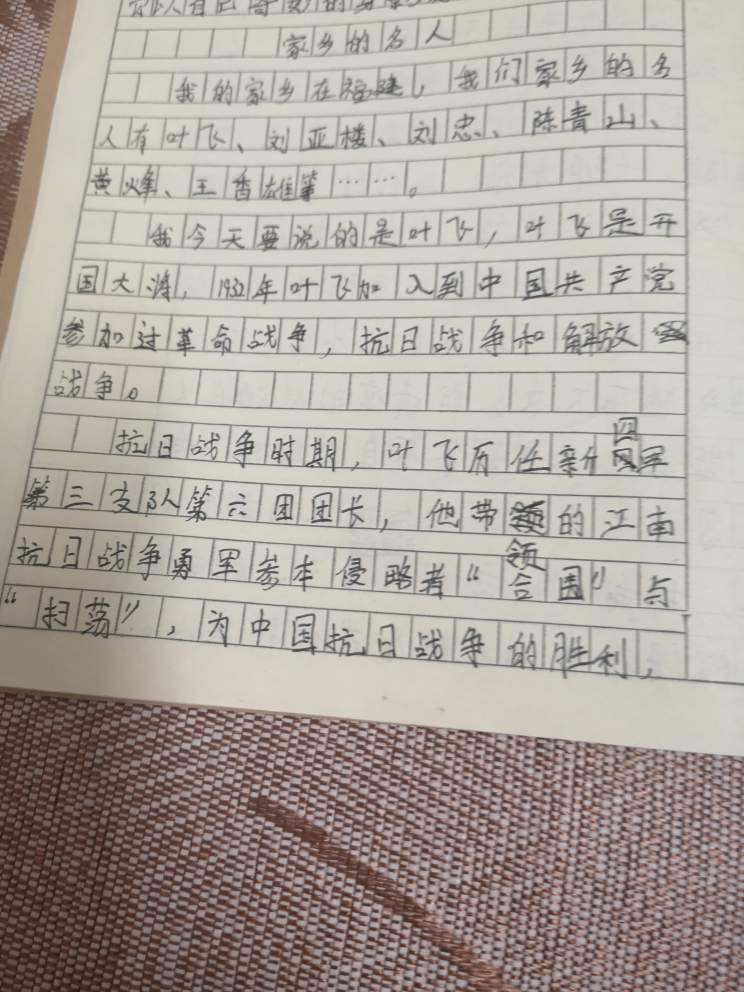 家乡的名人
我的家乡在福建，我们家乡的名
人有叶飞、刘亚楼、刘忠、陈青山、
黄烽、王香雄等……。
我今天要说的是叶飞，叶飞是开
国大将，1932年叶飞加入到中国共产党
参加过革命战争，抗日战争和解放
战争。
抗日战争时期，叶飞历任新四军
第三支队第六团团长，他带领的江南
抗日战争勇军参本侵略者“合围”与
“扫荡”，为中国抗日战争的胜利，